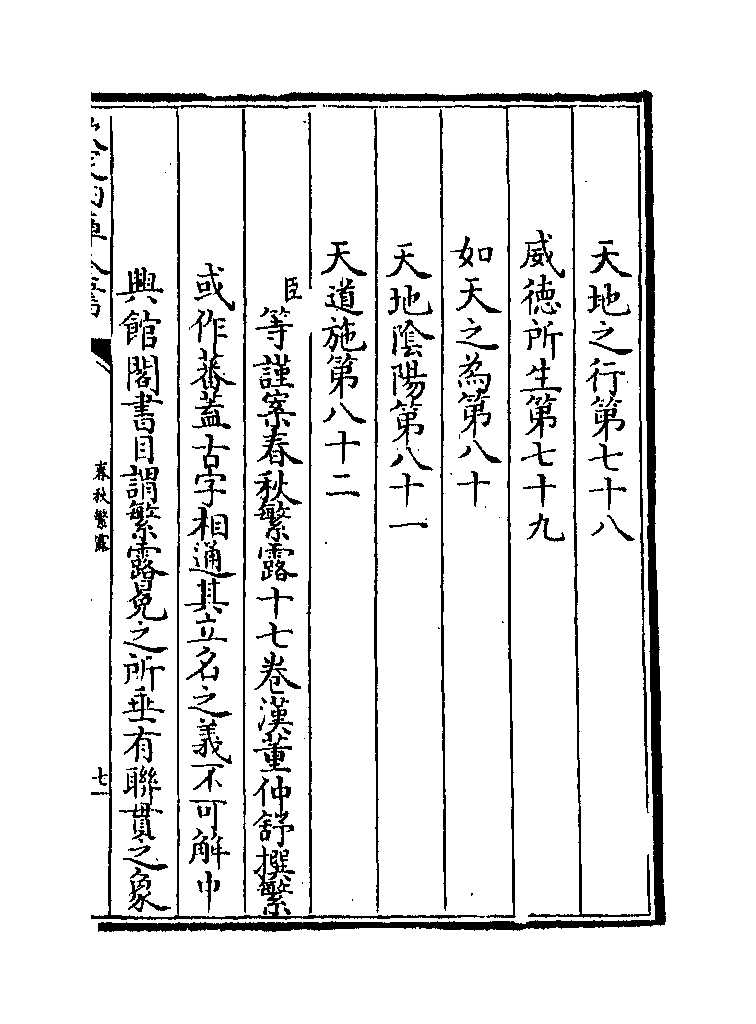 天地之行第七十八
威德所生第七十九
如天之為第八十
天地陰陽第八十一
天道施第八十二
臣等謹案春秋繁露十七卷漢董仲舒撰繁
或作蕃蓋古字相通其立名之義不可解中
興館閣書目謂繁露冕之所垂有聯貫之象
春秋繁露
七